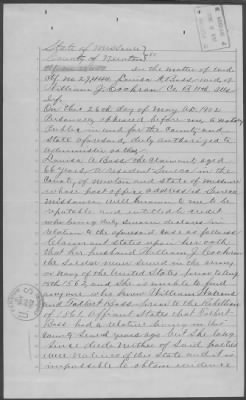 State of Missouri
County of Newton ss
In the matter of
Louisa A. Bass wid of
William J. Cochran Co. B 11th
Inf.
On this 26th day of May A.D. 1902
Personally appeared before me a Notary
Public in and for the County and
State aforesaid duly authorized to
administer oaths
Louisa A Bass the claimant aged
66 years, a resident Seneca in the
County of Newton and state of Missouri
whose post office address is Seneca
Missouri well known to me to be
reputable and entitled to credit
who being duly sworn declares in
relation to the aforesaid case as follows
Claimant states upon her oath
that her husband William J. Cochran
the soldier never served in the army
or navy of the United States prior to
1862 and she is unable to find
any one who knew William
and Bass prior to the Rebellion
of 1861 Affiant States that
Bass had a relative living in this
years ago but she long
since died neither of said parties
were natives of this state and it is
impossible to obtain evidence